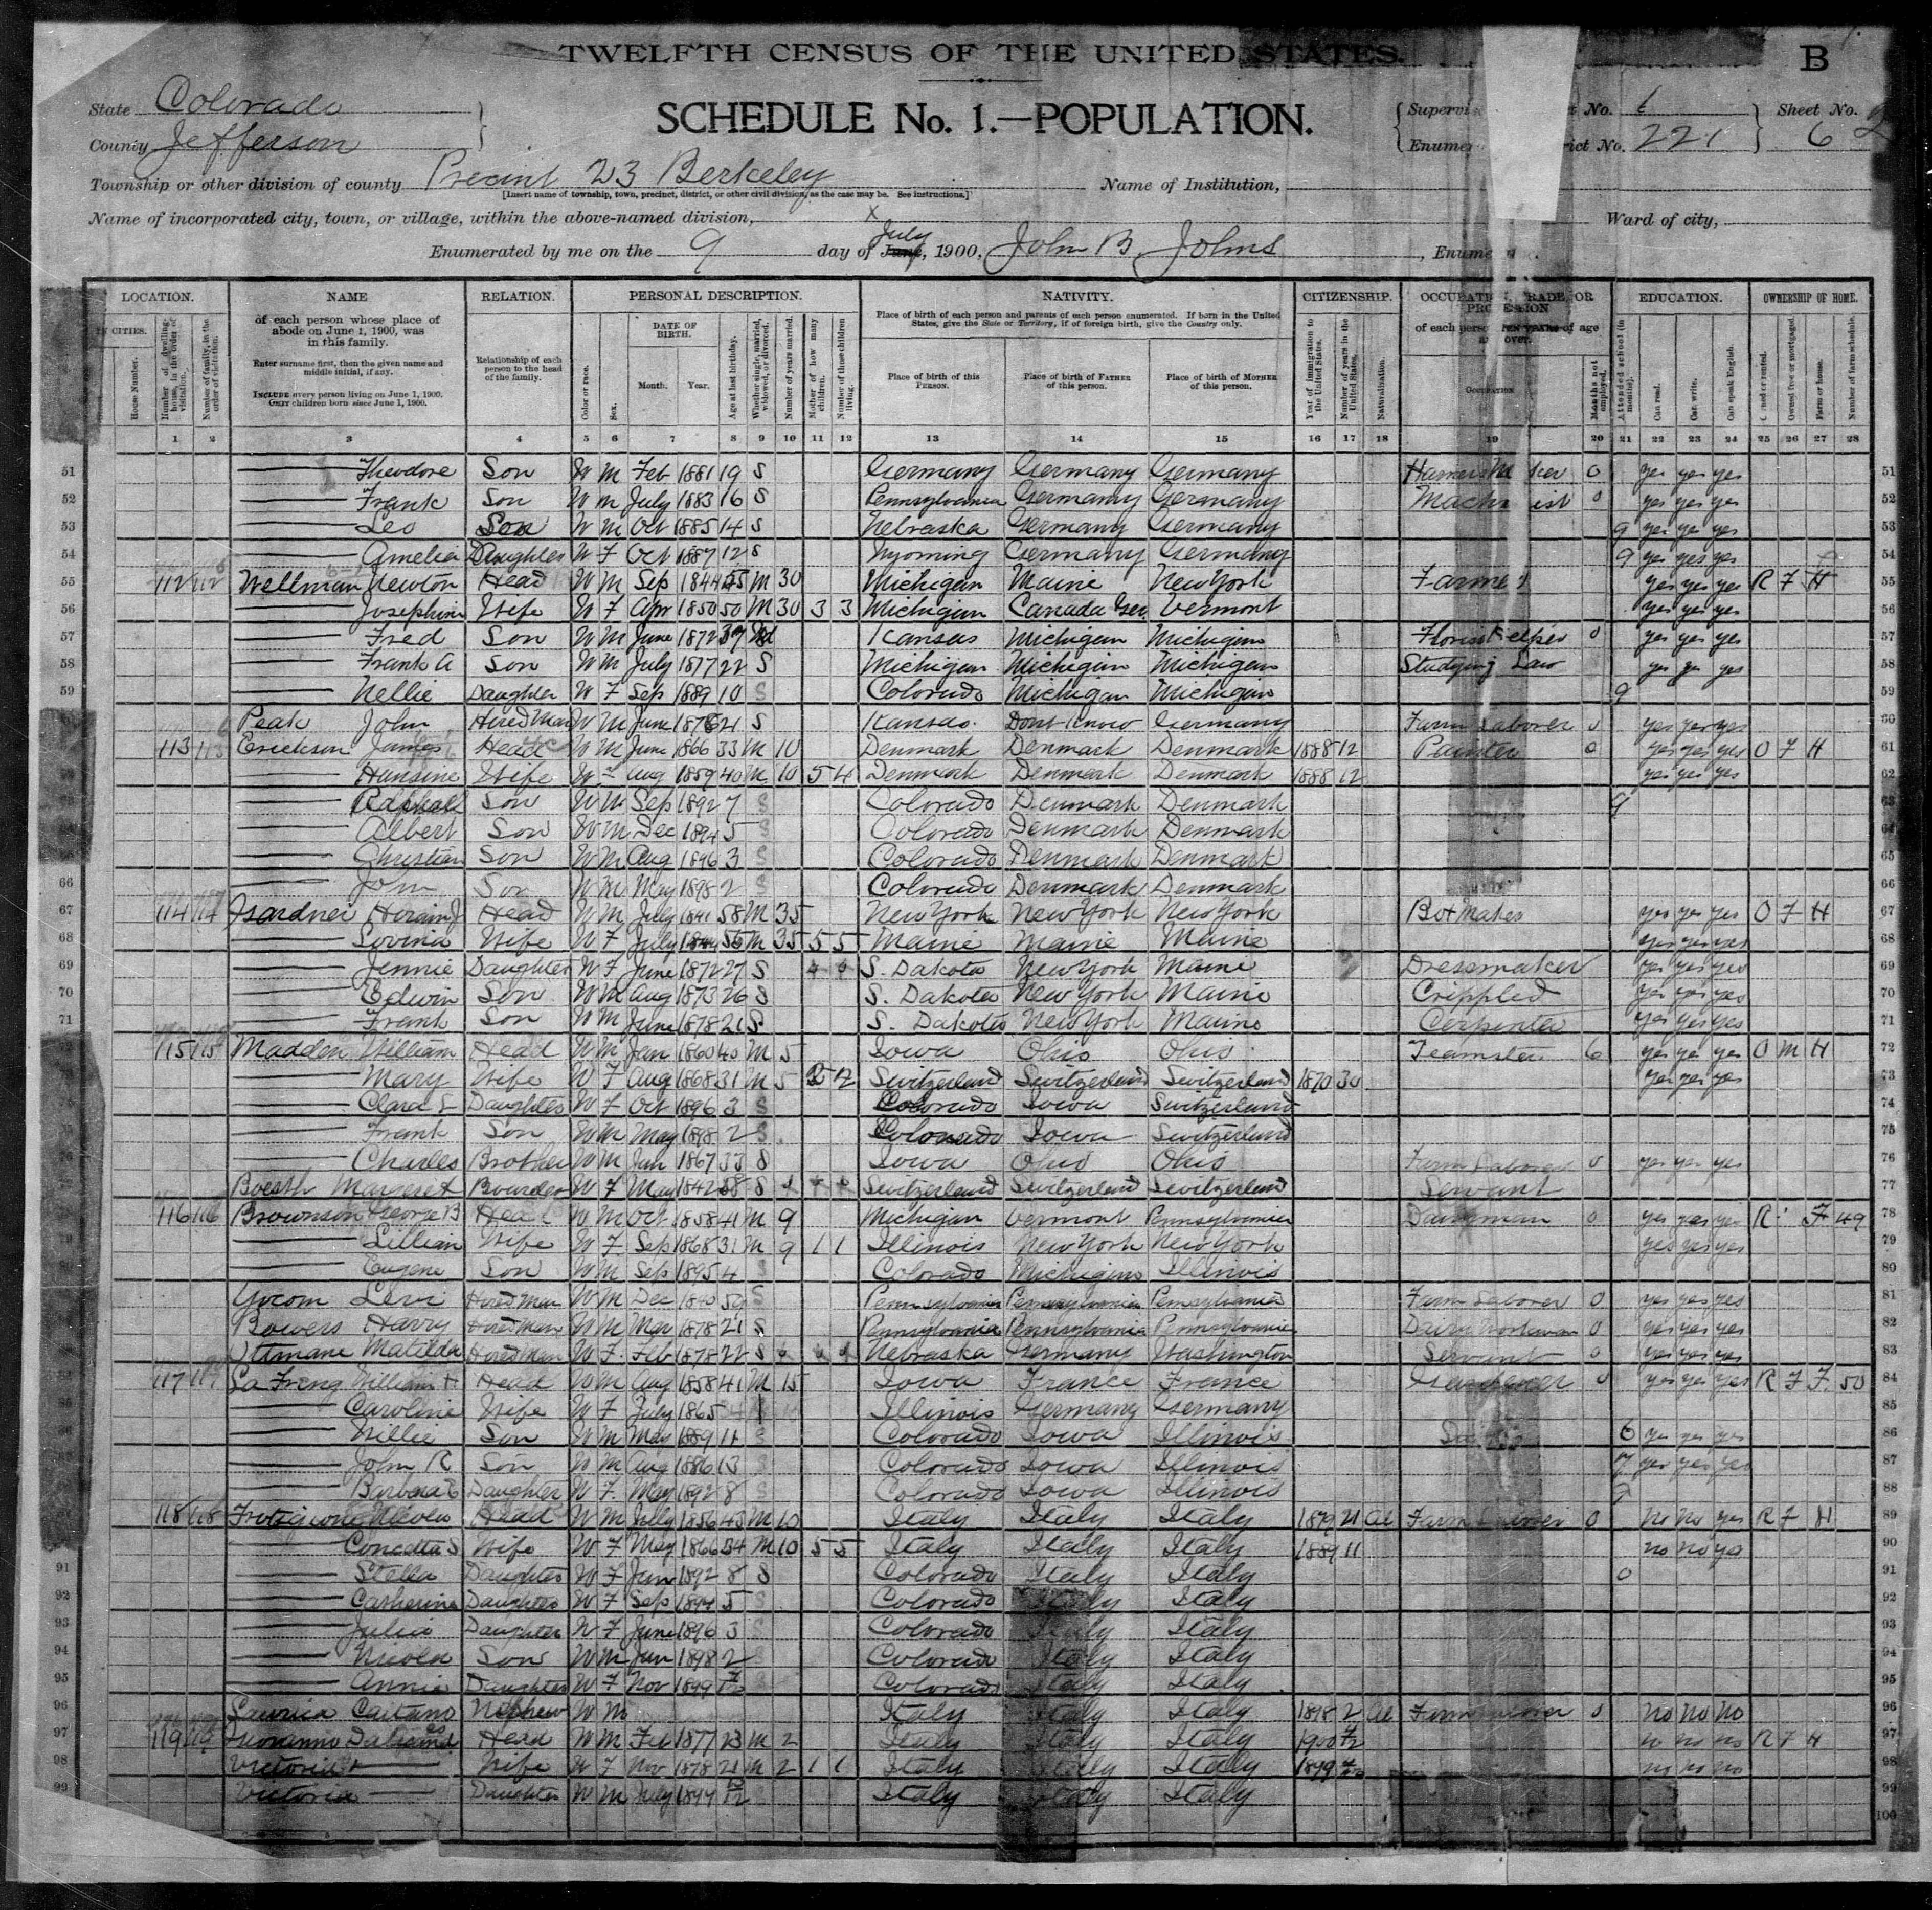 TWELFTH CENSUS OF THE UNITED STATES.
B
State Colorado
County Jefferson
SCHEDULE No. 1.—POPULATION.
No. 6
No. 221
Sheet No.
6
Township or other division of county Precint 23 Berkeley
Name of Institution,
[Insert name of township, town, precinct, district, or other civil division, as the case may be. See instructions.]
Name of incorporated city, town, or village, within the above-named division, X
Ward of city,
Enumerated by me on the 9 day of June, July 1900, John B Johns
LOCATION. NAME RELATION. PERSONAL DESCRIPTION. NATIVITY. CITIZENSHIP. EDUCATION. OWNERSHIP OF HOME.
IN CITIES.
House Number.
Number of dwelling-house, in the order of visitation.
Number of family, in the order of visitation.
of each person whose place of abode on June 1, 1900, was in this family.
Enter surname first, then the given name and middle initial, if any.
INCLUDE every person living on June 1, 1900.
OMIT children born since June 1, 1900.
Relationship of each person to the head of the family.
Color or race.
Sex.
DATE OF BIRTH.
Month. Year.
Age at last birthday.
Whether single, married, widowed, or divorced.
Number of years married.
Mother of how many children.
Number of these children living.
Place of birth of each person and parents of each person enumerated. If born in the United States, give the State or Territory, if of foreign birth, give the Country only.
Place of birth of this PERSON.
Place of birth of FATHER of this person.
Place of birth of MOTHER of this person.
Year of immigration to the United States.
Number of years in the United States.
Naturalization.
OCCUPATION.
Months not employed.
Attended school (in months).
Can read.
Can write.
Can speak English.
Owned or rented.
Owned free or mortgaged.
Farm or house.
Number of farm schedule.
1 2 3 4 5 6 7 8 9 10 11 12 13 14 15 16 17 18 19 20 21 22 23 24 25 26 27 28
51 Theodore Son W M Feb 1881 19 S Germany Germany Germany 0 yes yes yes 51
52 Frank Son W M July 1883 16 S Pennsylvania Germany Germany 0 yes yes yes 52
53 Leo Son W M Oct 1885 14 S Nebraska Germany Germany 9 yes yes yes 53
54 Amelia Daughter W F Oct 1887 12 S Wyoming Germany Germany 9 yes yes yes 54
55 112 112 Wellman Newton Head W M Sep 1844 55 M 30 Michigan Maine New York Farmer yes yes yes R F H 55
56 Josephine Wife W F Apr 1850 50 M 30 3 3 Michigan Canada Vermont yes yes yes 56
57 Fred Son W M June 1872 Kansas Michigan Michigan 0 yes yes yes 57
58 Frank A Son W M July 1877 22 S Michigan Michigan Michigan Studying Law yes yes yes 58
59 Nellie Daughter W F Sep 1889 10 S Colorado Michigan Michigan 9 59
Peak John Hired Man W M June S Kansas Dont Know Germany Farm Laborer 0 yes yes yes 60
113 113 Erickson James Head W M June 1866 33 M 10 Denmark Denmark Denmark 1888 12 Painter 0 yes yes yes O F H 61
Hansine Wife W F Aug 1859 40 M 10 5 4 Denmark Denmark Denmark 1888 12 yes yes yes 62
Son W M Sep 1892 7 S Colorado Denmark Denmark 9 63
Albert Son W M Dec 1894 5 S Colorado Denmark Denmark 64
Christian Son W M Aug 1896 3 S Colorado Denmark Denmark 65
66 John Son W M May 1898 2 S Colorado Denmark Denmark 66
67 114 114 Gardner Hiram J Head W M July 1841 58 M 35 New York New York New York yes yes yes O F H 67
68 Lovina Wife W F July M 35 5 5 Maine Maine Maine yes yes yes 68
69 Jennie Daughter W F June 1872 27 S S. Dakota New York Maine Dressmaker yes yes yes 69
70 Edwin Son W M Aug 1873 26 S S. Dakota New York Maine Crippled yes yes yes 70
71 Frank Son W M June 1878 21 S S. Dakota New York Maine Carpenter yes yes yes 71
72 115 115 Madden William Head W M Jan 1860 40 M 5 Iowa Ohio Ohio Teamster 6 yes yes yes O M H 72
Mary Wife W F Aug 1868 31 M 5 2 2 Switzerland Switzerland Switzerland 1870 30 yes yes yes 73
Clara E Daughter W F Oct 1896 3 S Colorado Iowa Switzerland 74
Frank Son W M May 1898 2 S Colorado Iowa Switzerland 75
76 Charles Brother W M Jan 1867 33 S Iowa Ohio Ohio Farm Laborer 0 yes yes yes 76
Margeret Boarder W F May 1842 58 S Switzerland Switzerland Switzerland Servant 77
116 116 Brownson George B Head W M Oct 1858 41 M 9 Michigan Vermont Pennsylvania Dairyman 0 yes yes yes R F 49 78
Lillian Wife W F Sep 1868 31 M 9 1 1 Illinois New York New York yes yes yes 79
Eugene Son W M Sep 1895 4 S Colorado Michigan Illinois 80
81 Yocom Levi Hired Man W M Dec 1840 59 S Pennsylvania Pennsylvania Pennsylvania Farm Laborer 0 yes yes yes 81
82 Bowers Harry Hired Man W M Mar 1878 21 S Pennsylvania Pennsylvania Pennsylvania Dairy Workman 0 yes yes yes 82
83 Matilda Hired Man W F Feb 1878 22 S Nebraska Germany Washington Servant 0 yes yes yes 83
117 William H Head W M Aug 1858 41 M 15 Iowa France France Gardener 0 yes yes yes R F F 50 84
Caroline Wife W F July 1865 Illinois Germany Germany 85
Willie Son W M May 1889 11 S Colorado Iowa Illinois 6 yes yes yes 86
John R Son W M Aug 1886 13 S Colorado Iowa Illinois 7 yes yes yes 87
Daughter W F May 1892 8 S Colorado Iowa Illinois 88
118 118 Head W M July 1856 43 M 10 Italy Italy Italy 1879 21 Al Farm Laborer 0 no no yes R F H 89
Wife W F May 1866 34 M 10 5 5 Italy Italy Italy 1889 11 no no yes 90
91 Stella Daughter W F Jun 1892 8 S Colorado Italy Italy 0 91
92 Catherine Daughter W F Sep 1894 5 S Colorado Italy Italy 92
93 Julia Daughter W F June 1896 3 S Colorado Italy Italy 93
94 Nicola Son W M Jan 1898 2 Colorado Italy Italy 94
95 Annie Daughter W F Nov 1899 7/12 Colorado Italy Italy 95
96 Caitano Nephew W M Italy Italy Italy 1898 2 Al Farm Laborer 0 no no no 96
97 119 119 Head W M Feb 1877 23 M 2 Italy Italy Italy 1900 no no no R F H 97
98 Victoria Wife W F Nov 1878 21 M 2 1 1 Italy Italy Italy 1899 no no no 98
99 Victoria Daughter W M July Italy Italy Italy 99
100